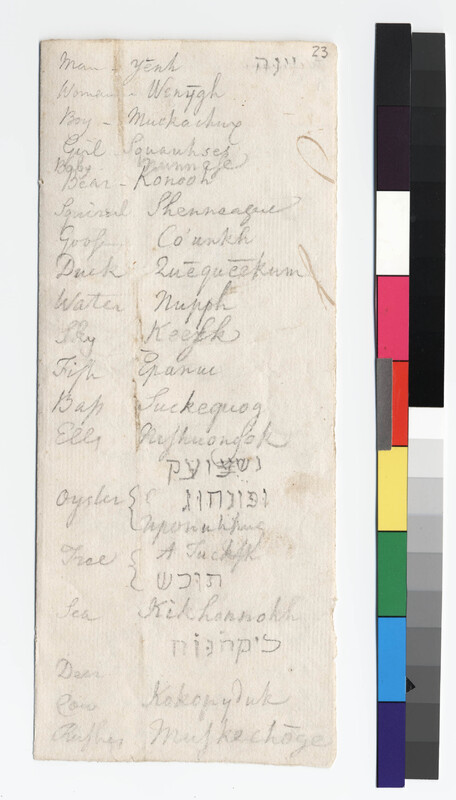 23
Man - yēnh יינה
Woman - Wenȳgh
Boy - Muckachux
Girl Squauhses
Baby
Bear - Konooh
Squirrel Shenneague
Goose Co'unkh
Duck Quēquēekum
Water Nupph
Sky Keesk
Fish Epanuu
Bass Suckequog
Eells Neshuongok
נשעועק
Oyster ופונחוג
Tree A Tucksk
תוכש
Sea Kikhonnokh
כיקהנוח
Dear
Kokopyduk
Rushes Muskechōge